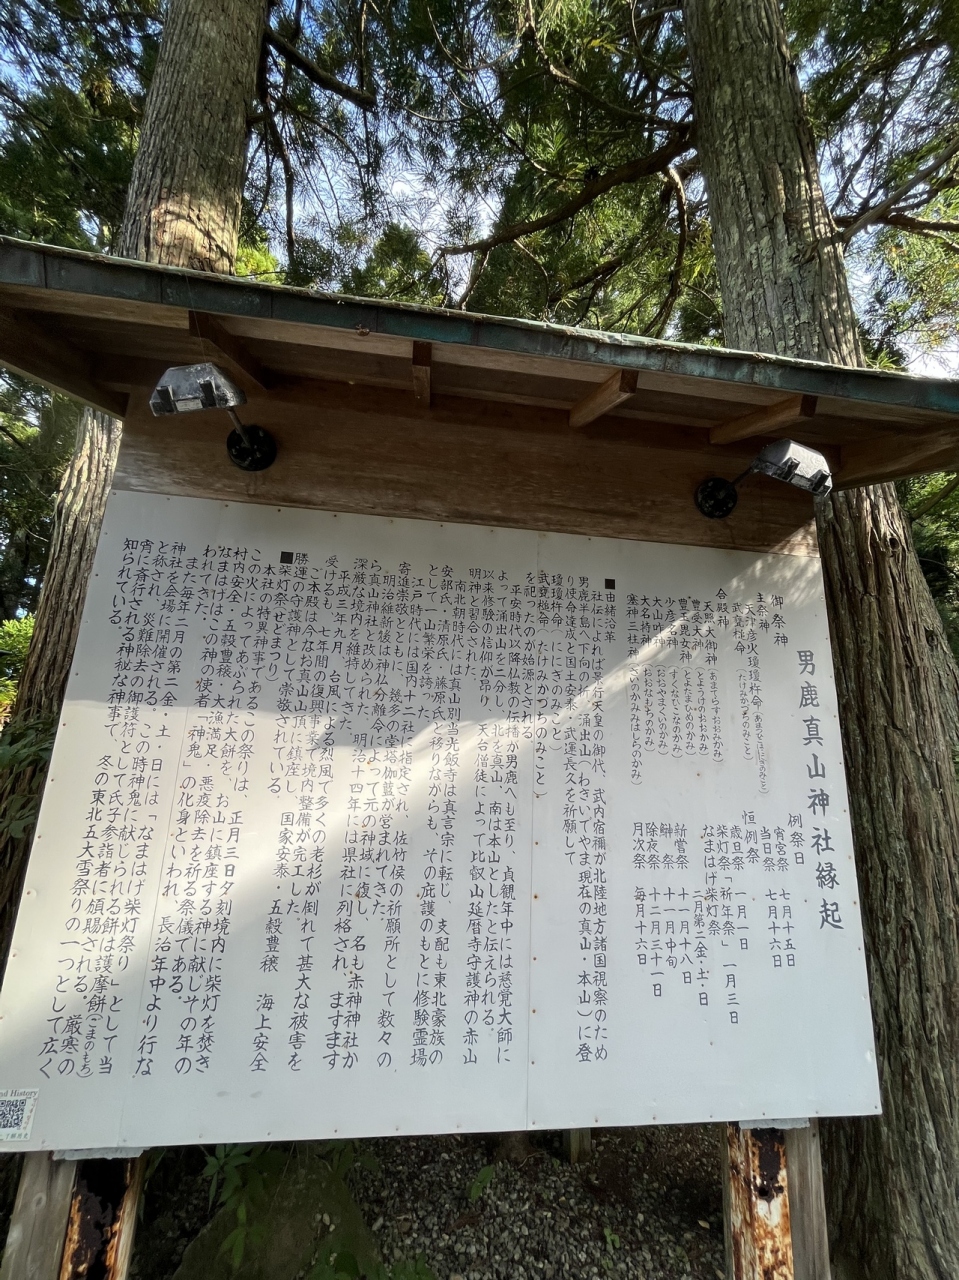 男鹿真山神社縁起
御祭神
主祭神
天津彦火瓊瓊杵命
武甕槌命(たけみかづちのみこと)
合殿神
天照大御神(あまてらすおおみかみ)
豊受大神(とようけのおおかみ)
豊玉毘女神
少彦名神(すくなひこなのかみ)
大山咋神(おおやまくいのかみ)
大名持神(おおなもちのかみ)
塞神三柱(さいのかみみはしらのかみ)
例祭日
宵宮祭 七月十五日
当日祭 七月十六日
恒例祭
歳旦祭 一月一日
柴灯祭「祈年祭」 一月三日
なまはげ柴灯祭
二月第二金・土・日
新嘗祭 十一月十八日
鮮祭 十一月中旬
除夜祭 十二月三十一日
月次祭 毎月十六日
■由緒沿革
社伝によれば景行天皇の御代、武内宿禰が北陸地方諸国視察のため
男鹿半島へ下向の折、湧出山(わきいでやま現在の真山・本山)に登
り使命達成と国土安泰・武運長久を祈願して
瓊瓊杵命(ににぎのみこと)
武甕槌命(たけみかづちのみこと)
を祀ったのが始源とされる
平安時代以降仏教の伝播が男鹿へも至り、貞観年中には慈覚大師に
よって湧出山を二分し、北を真山、南は本山としたと伝えられる。
以来修験の信仰が昂り、天台僧徒によって比叡山延暦寺守護神の赤山
明神と習合された。
南北朝時代には真山別当光飯寺は真言宗に転じ、支配も東北豪族の
安部氏、清原氏、藤原氏と移りながらも、その庇護のもとに修験霊場
として一山繁栄を誇った
江戸時代には国内十二社に指定され、佐竹侯の祈願所として数々の
寄進崇敬とともに、幾多の堂塔伽藍が営まれてきた
明治維新後は神仏分離令によって元の神域に復し、名も赤神神社か
ら真山神社と改められた。明治十四年には県社に列格され、ますます
深厳な境内を維持してきた
平成三年九月、台風による烈風で多くの老杉が倒れて甚大な被害を
受けるも、七年間の復興事業で境内整備が完工した
本殿は今なお真山山頂に鎮座し、国家安泰・五穀豊穣 海上安全
勝運の守護神として崇敬されている。
■柴灯祭(せどまつり)
本社の特異神事であるこの祭りは、正月三日夕刻境内に柴灯を焚き
この火によってあぶられた大餅を、お山に鎮座する神に献じその年の
村内安全、五穀豊穣、大漁満足、悪疫除去を祈る祭儀である。
なまはげは、この神の使者「神鬼」の化身といわれ、長治年中より行な
われてきた。
また、毎年二月の第二金・土・日には「なまはげ柴灯祭り」として当
神社を会場に開催される。この時神鬼に献じられる餅は護摩餅(ごまのもち)
と称され、災難除去の御護符として氏子参詣者に頒賜される。厳寒の
宵に行われるこの神秘な神事て、冬の東北五大雪祭りの一つとして広く
知られている。